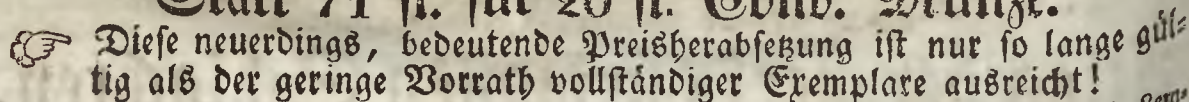 Statt 71 fl. für 20 fl. Conv. Münze.
☞ Diese neuerdings, bedeutende Preisherabsetzung ist nur so lange gül-
tig als der geringe Vorrath vollständiger Exemplare ausreicht!